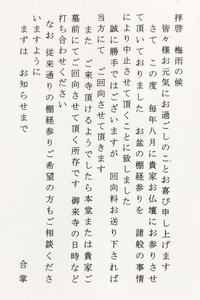 拝啓 梅雨の候
皆々様お元気にお過ごしのことお喜び申し上げます
さて この度 毎年八月に貴家お仏壇にお参りさせ
て頂いておりました お盆の棚経参りを 諸般の事情
により中止させて頂くことに致しました
誠に勝手ではございますが 回向料お送り下されば
当方にて ご回向させて頂きます
また ご来寺頂けるようでしたら本堂または貴家ご
墓前にてご回向させて頂く所存です 御来寺の日時など
打ち合わせください
なお 従来通りの棚経参りご希望の方もご相談くださ
いますように
まずは お知らせまで
合掌